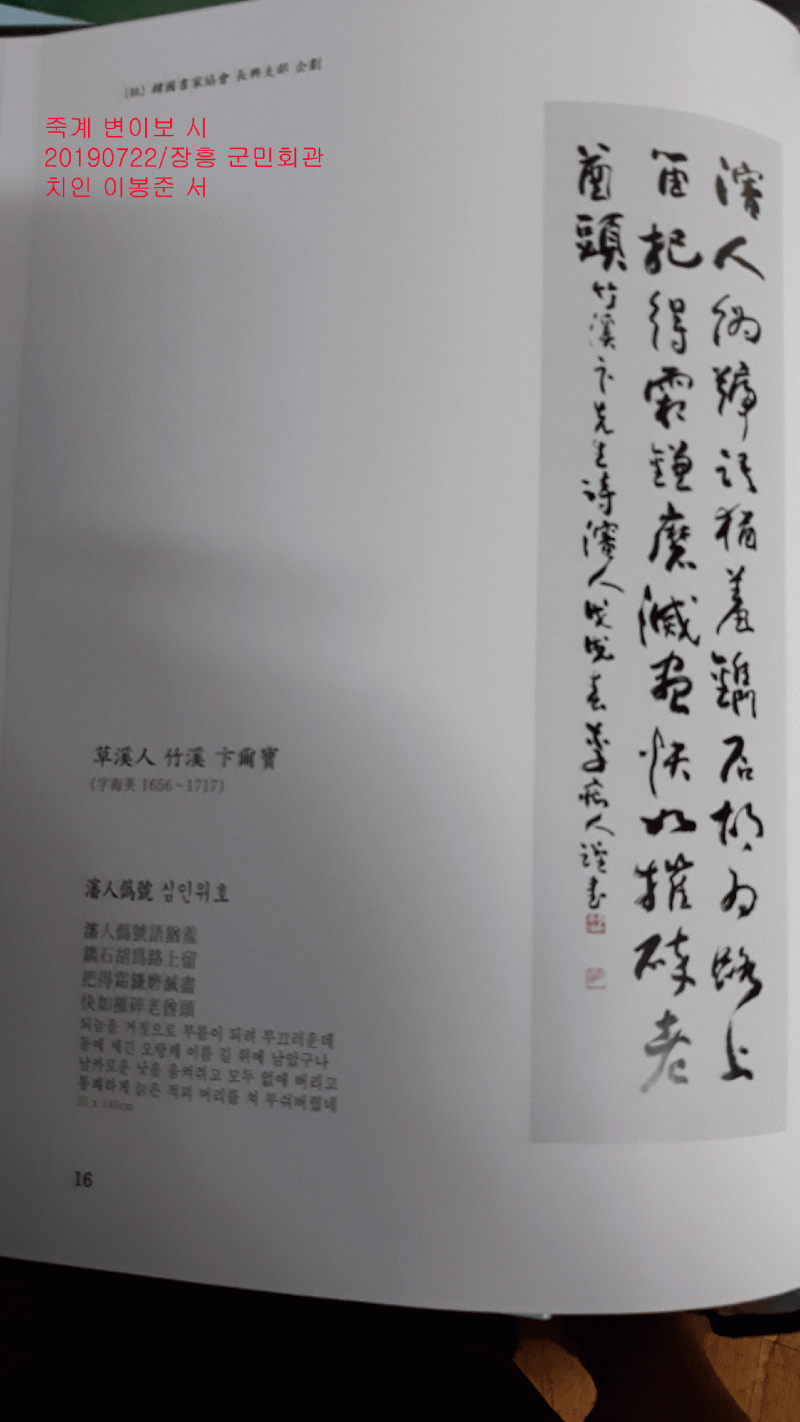 (社) 韓國書家協會 長興支部 企劃
죽계 변이보 시
20190722/장흥 군민회관
치인 이봉준 서
瀋人僞號語猶羞鐫石胡為路上
留把得霜鎌磨滅盡快如摧碎老
酋頭 竹溪卞先生詩瀋人
草溪人 竹溪 卞爾寶
(字海英 1656~1717)
瀋人僞號 심인위호
瀋人僞號語猶羞
鐫石胡爲路上留
把得霜鎌磨滅盡
快如摧碎老酋頭
되놈을 거짓으로 부름이 되려 부끄러운데
돌에 새긴 오랑캐 이름 길 위에 남았구나
날카로운 낫을 움켜쥐고 모두 없애 버리고
통쾌하게 늙은 적괴 머리를 쳐 부숴버렸네
35 x 140cm
16